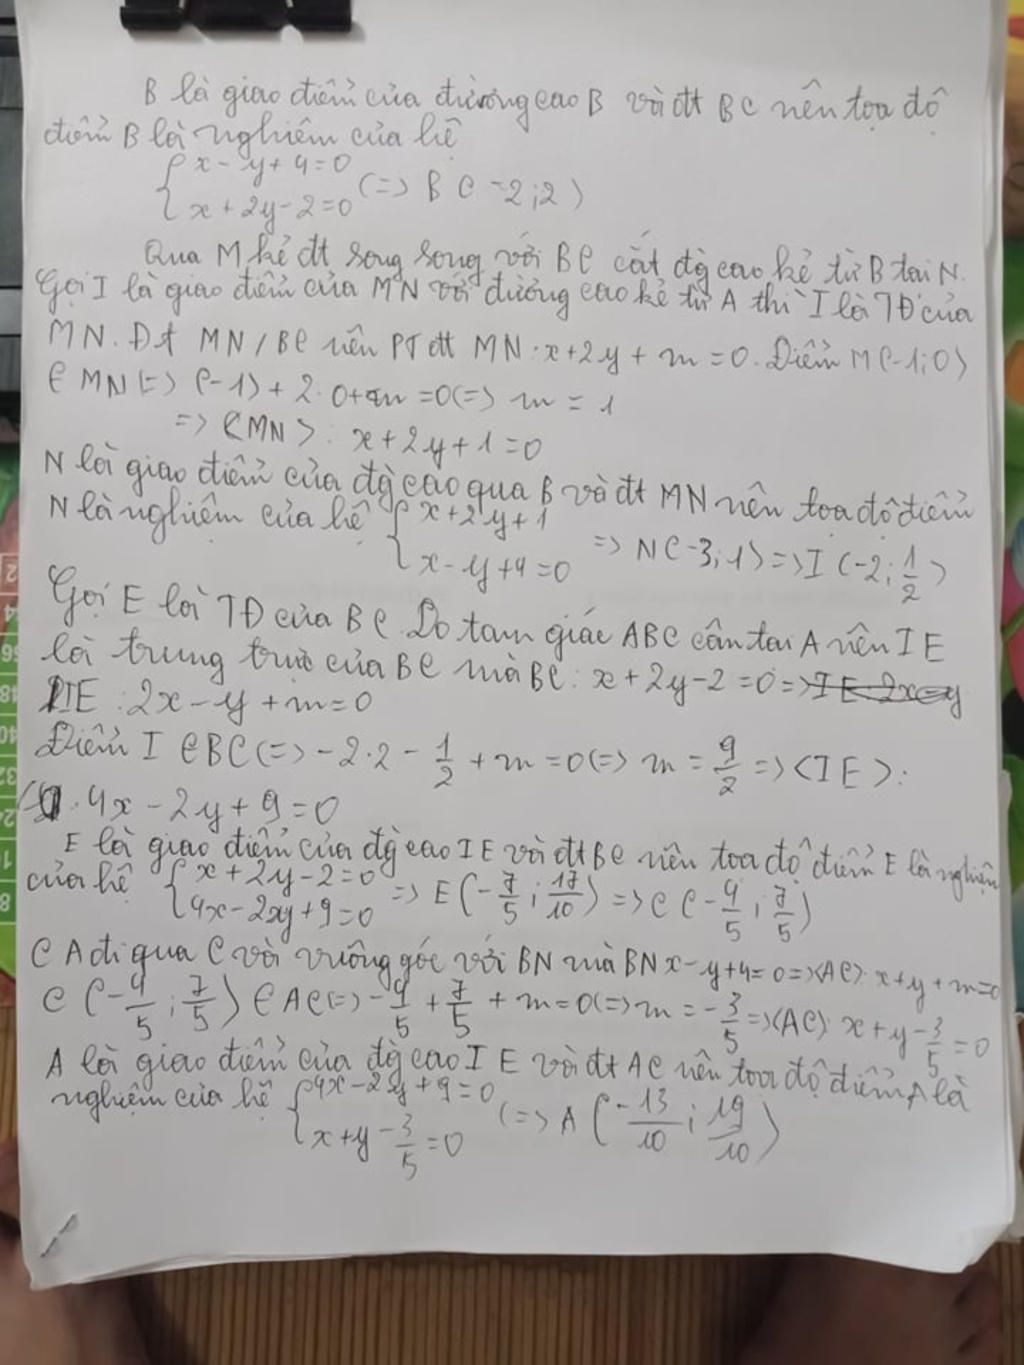 B là giao điểm của đường cao B và đt BC nên tọa độ
điểm B là nghiệm của hệ
{ x - y + 4 = 0
{ x + 2y - 2 = 0 (=> B (-2; 2)
Qua M kẻ đt song song với BC cắt đg cao kẻ từ B tại N.
Gọi I là giao điểm của MN với đường cao kẻ từ A thì I là TĐ của
MN. Đt MN / BC nên PT đt MN: x + 2y + m = 0. Điểm M (-1; 0)
∈ MN (=> (-1) + 2·0 + m = 0 (=> m = 1
=> (MN): x + 2y + 1 = 0
N là giao điểm của đg cao qua B và đt MN nên tọa độ điểm
N là nghiệm của hệ { x + 2y + 1
{ x - y + 4 = 0 => N (-3; 1) => I (-2; 1/2)
Gọi E là TĐ của BC. Do tam giác ABC cân tại A nên IE
là trung trực của BC mà BC: x + 2y - 2 = 0 =>
IE: 2x - y + m = 0
Điểm I ∈ BC (=> -2·2 - 1/2 + m = 0 (=> m = 9/2 => (IE):
4x - 2y + 9 = 0
E là giao điểm của đg cao IE và đt BC nên tọa độ điểm E là nghiệm
của hệ { x + 2y - 2 = 0
{ 4x - 2xy + 9 = 0 => E (-7/5; 17/10) => C (-4/5; 7/5)
CA đi qua C và vuông góc với BN mà BN x - y + 4 = 0 => (AC): x + y + m = 0
C (-4/5; 7/5) ∈ AC (=> -4/5 + 7/5 + m = 0 (=> m = -3/5 => (AC): x + y - 3/5 = 0
A là giao điểm của đg cao IE và đt AC nên tọa độ điểm A là
nghiệm của hệ { 4x - 2y + 9 = 0
{ x + y - 3/5 = 0 (=> A (-13/10; 19/10)